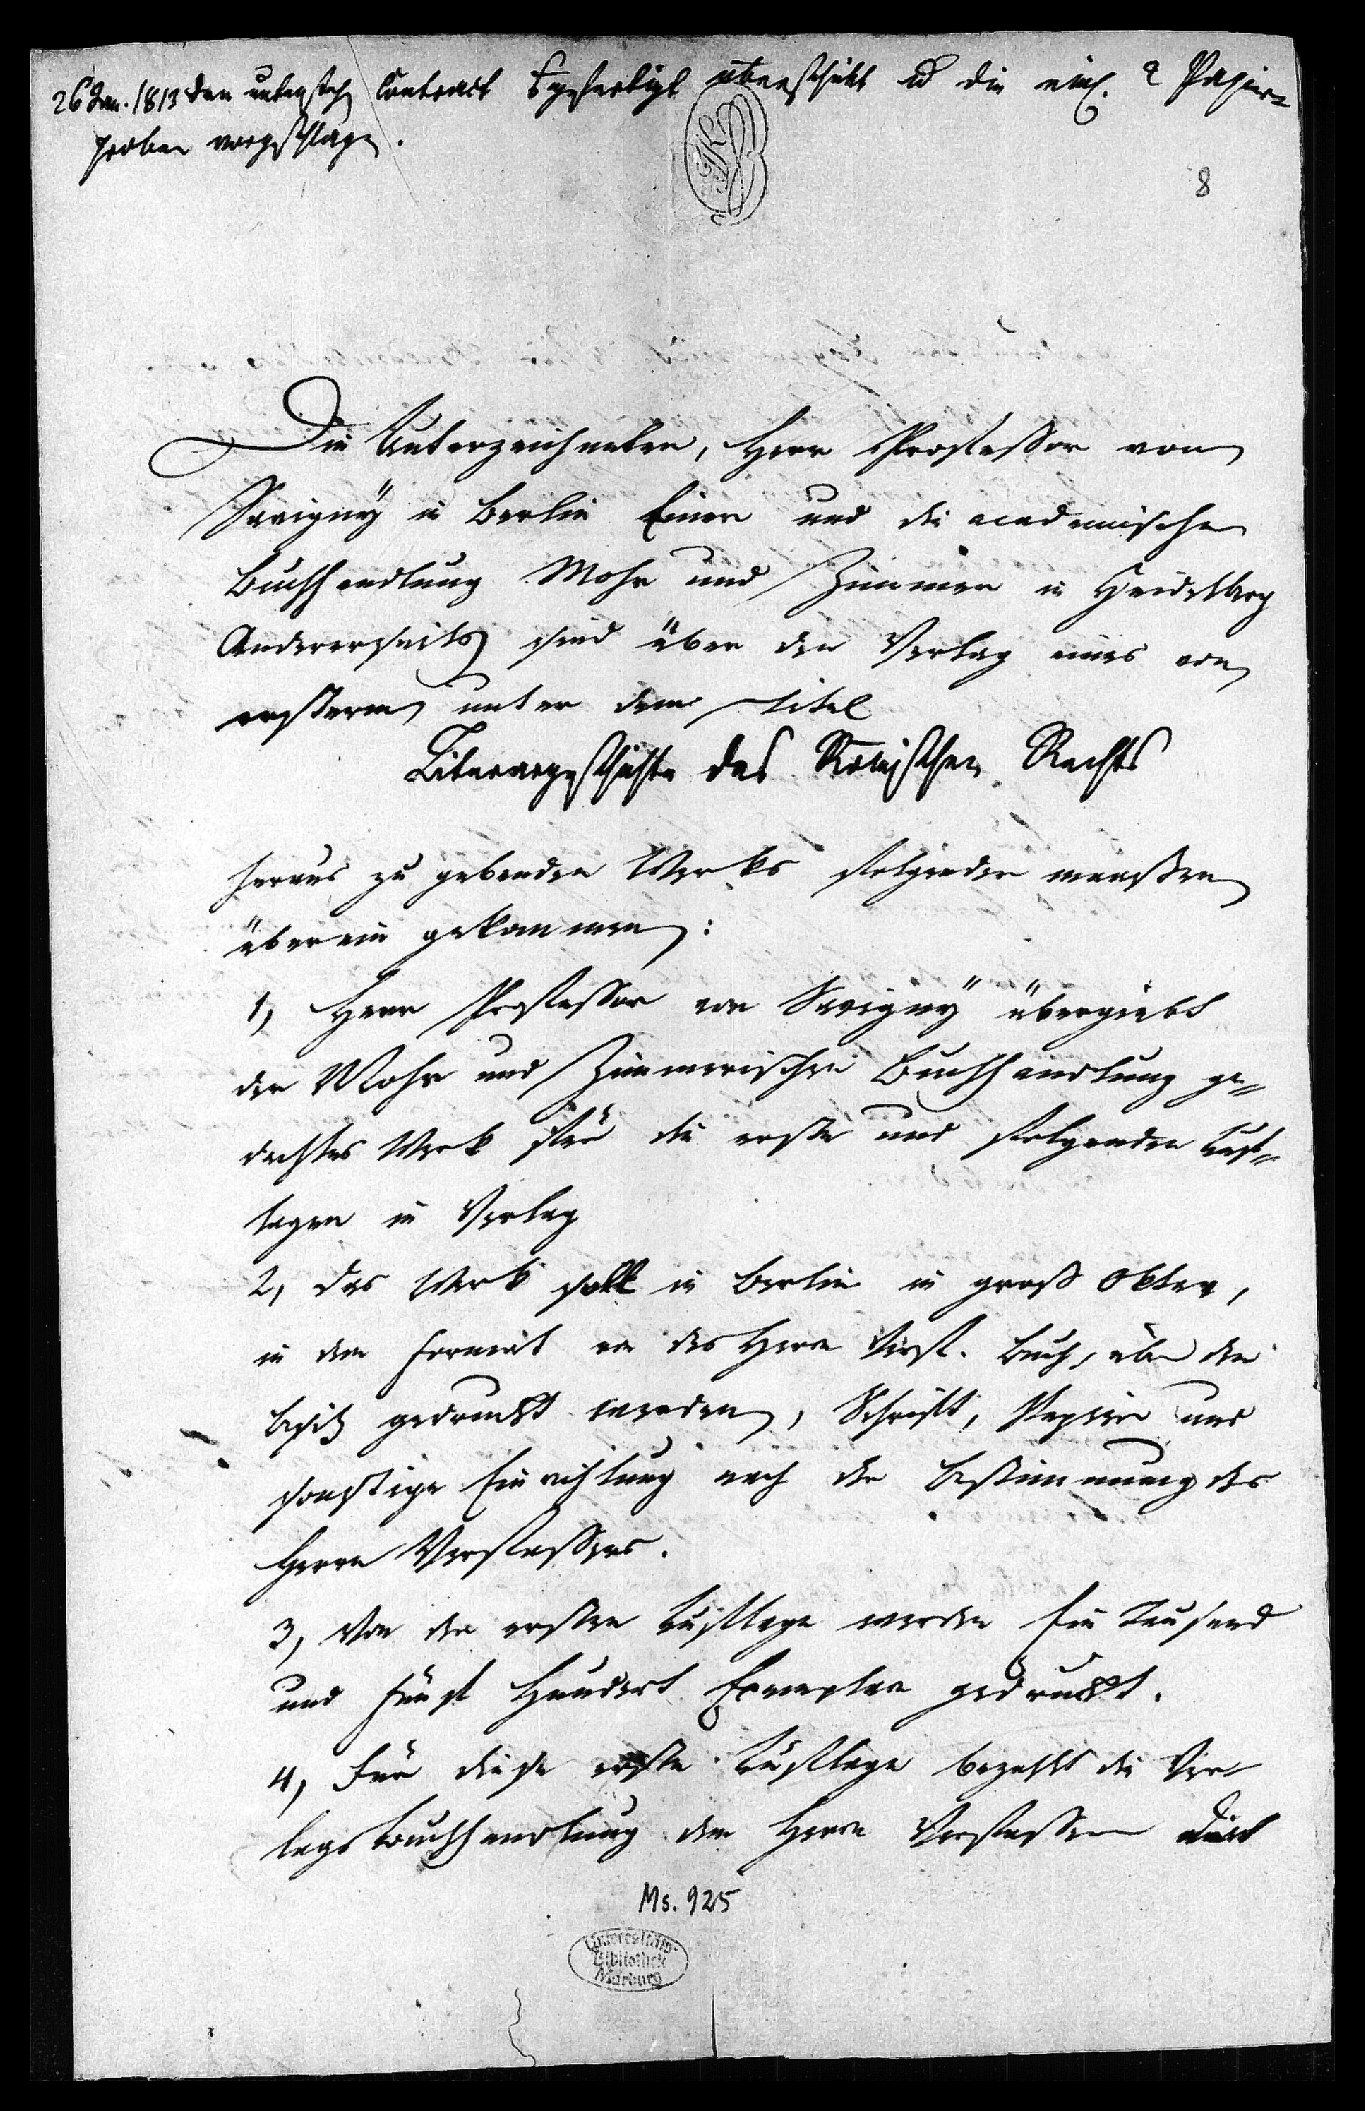 26 Jan. 1813 den unterzeich Contract überschickt u die eine 2 Papier-
proben vorgeschlagen.
8
Die Unterzeichneten, Herr Professor von
Savigny in Berlin Einer und die academische
Buchhandlung Mohr und Zimmer in Heidelberg
Andererseits sind über den Verlag eines von
ersterem unter dem Titel
Literargeschichte des Römischen Rechts
heraus zu gebenden Werks folgender maaßen
überein gekommen:
1, Herr Professor von Savigny übergiebt
der Mohr und Zimmerischen Buchhandlung ge-
dachtes Werk für die erste und folgenden Auf-
lagen in Verlag
2, das Werk soll in Berlin in groß Oktav,
in dem Format von des Herrn Verf. Buch, über den
Besitz gedruckt werden, Schrift, Papier und
sonstige Einrichtung nach der Bestimmung des
Herrn Verfassers.
3, Von der ersten Auflage werden Ein Tausend
und fünf Hundert Exemplare gedruckt.
4, Für diese erste Auflage bezahlt die Ver-
lagsbuchhandlung dem Herrn Verfasser
Ms. 925
Universitäts-
Bibliothek
Marburg